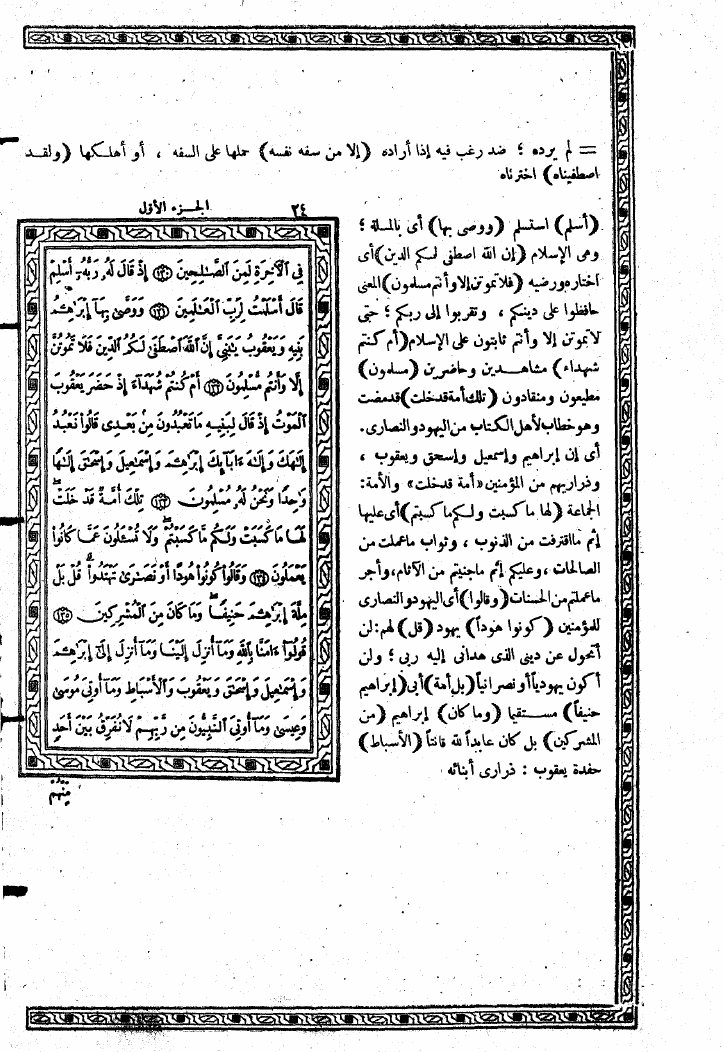 = لم يرده ؛ ضد رغب فيه إذا أراده (إلا من سفه نفسه) حملها على السفه ، أو أهلكها (ولقد
اصطفيناه) اخترناه
(أسلم) استسلم (ووصى بها) أى بالملة ؛
وهى الإسلام (إن الله اصطفى لكم الدين) أى
اختاره ورضيه (فلا تموتن إلا وأنتم مسلمون) المعنى
حافظوا على دينكم ، وتقربوا إلى ربكم ؛ حتى
لا تموتن إلا وأنتم ثابتون على الإسلام (أم كنتم
شهداء) مشاهدين وحاضرين (مسلمون)
مطيعون ومنقادون (تلك أمة قد خلت) قد مضت
وهو خطاب لأهل الكتاب من اليهود والنصارى.
أى إن إبراهيم وإسمعيل وإسحق ويعقوب ،
وذراريهم من المؤمنين «أمة قد خلت» والأمة:
الجماعة (لها ما كسبت ولكم ما كسبتم) أى عليها
إثم ما اقترفت من الذنوب ، وثواب ما عملت من
الصالحات ، وعليكم إثم ما جنيتم من الآثام، وأجر
ما عملتم من الحسنات (وقالوا) أى اليهود والنصارى
للمؤمنين (كونوا هوداً) يهود (قل) لهم: لن
أتحول عن دينى الذى هدانى إليه ربى ؛ ولن
أكون يهودياً أو نصرانياً (بل ملة) أبى (إبراهيم
حنيفاً) مستقيما (وما كان) إبراهيم (من
المشركين) بل كان عابداً لله قانتاً (الأسباط)
حفدة يعقوب : ذرارى أبنائه
٢٤ الجزء الأول
فِي ٱلْأٓخِرَةِ لَمِنَ ٱلصَّٰلِحِينَ ﴿١٣٠﴾ إِذْ قَالَ لَهُۥ رَبُّهُۥٓ أَسْلِمْ
قَالَ أَسْلَمْتُ لِرَبِّ ٱلْعَٰلَمِينَ ﴿١٣١﴾ وَوَصَّىٰ بِهَآ إِبْرَٰهِـۧمُ
بَنِيهِ وَيَعْقُوبُ يَٰبَنِىَّ إِنَّ ٱللَّهَ ٱصْطَفَىٰ لَكُمُ ٱلدِّينَ فَلَا تَمُوتُنَّ
إِلَّا وَأَنتُم مُّسْلِمُونَ ﴿١٣٢﴾ أَمْ كُنتُمْ شُهَدَآءَ إِذْ حَضَرَ يَعْقُوبَ
ٱلْمَوْتُ إِذْ قَالَ لِبَنِيهِ مَا تَعْبُدُونَ مِنۢ بَعْدِى قَالُوا۟ نَعْبُدُ
إِلَٰهَكَ وَإِلَٰهَ ءَابَآئِكَ إِبْرَٰهِـۧمَ وَإِسْمَٰعِيلَ وَإِسْحَٰقَ إِلَٰهًا
وَٰحِدًا وَنَحْنُ لَهُۥ مُسْلِمُونَ ﴿١٣٣﴾ تِلْكَ أُمَّةٌ قَدْ خَلَتْ ۖ
لَهَا مَا كَسَبَتْ وَلَكُم مَّا كَسَبْتُمْ ۖ وَلَا تُسْـَٔلُونَ عَمَّا كَانُوا۟
يَعْمَلُونَ ﴿١٣٤﴾ وَقَالُوا۟ كُونُوا۟ هُودًا أَوْ نَصَٰرَىٰ تَهْتَدُوا۟ ۗ قُلْ بَلْ
مِلَّةَ إِبْرَٰهِـۧمَ حَنِيفًا ۖ وَمَا كَانَ مِنَ ٱلْمُشْرِكِينَ ﴿١٣٥﴾
قُولُوٓا۟ ءَامَنَّا بِٱللَّهِ وَمَآ أُنزِلَ إِلَيْنَا وَمَآ أُنزِلَ إِلَىٰٓ إِبْرَٰهِـۧمَ
وَإِسْمَٰعِيلَ وَإِسْحَٰقَ وَيَعْقُوبَ وَٱلْأَسْبَاطِ وَمَآ أُوتِىَ مُوسَىٰ
وَعِيسَىٰ وَمَآ أُوتِىَ ٱلنَّبِيُّونَ مِن رَّبِّهِمْ لَا نُفَرِّقُ بَيْنَ أَحَدٍ
مِّنْهُمْ